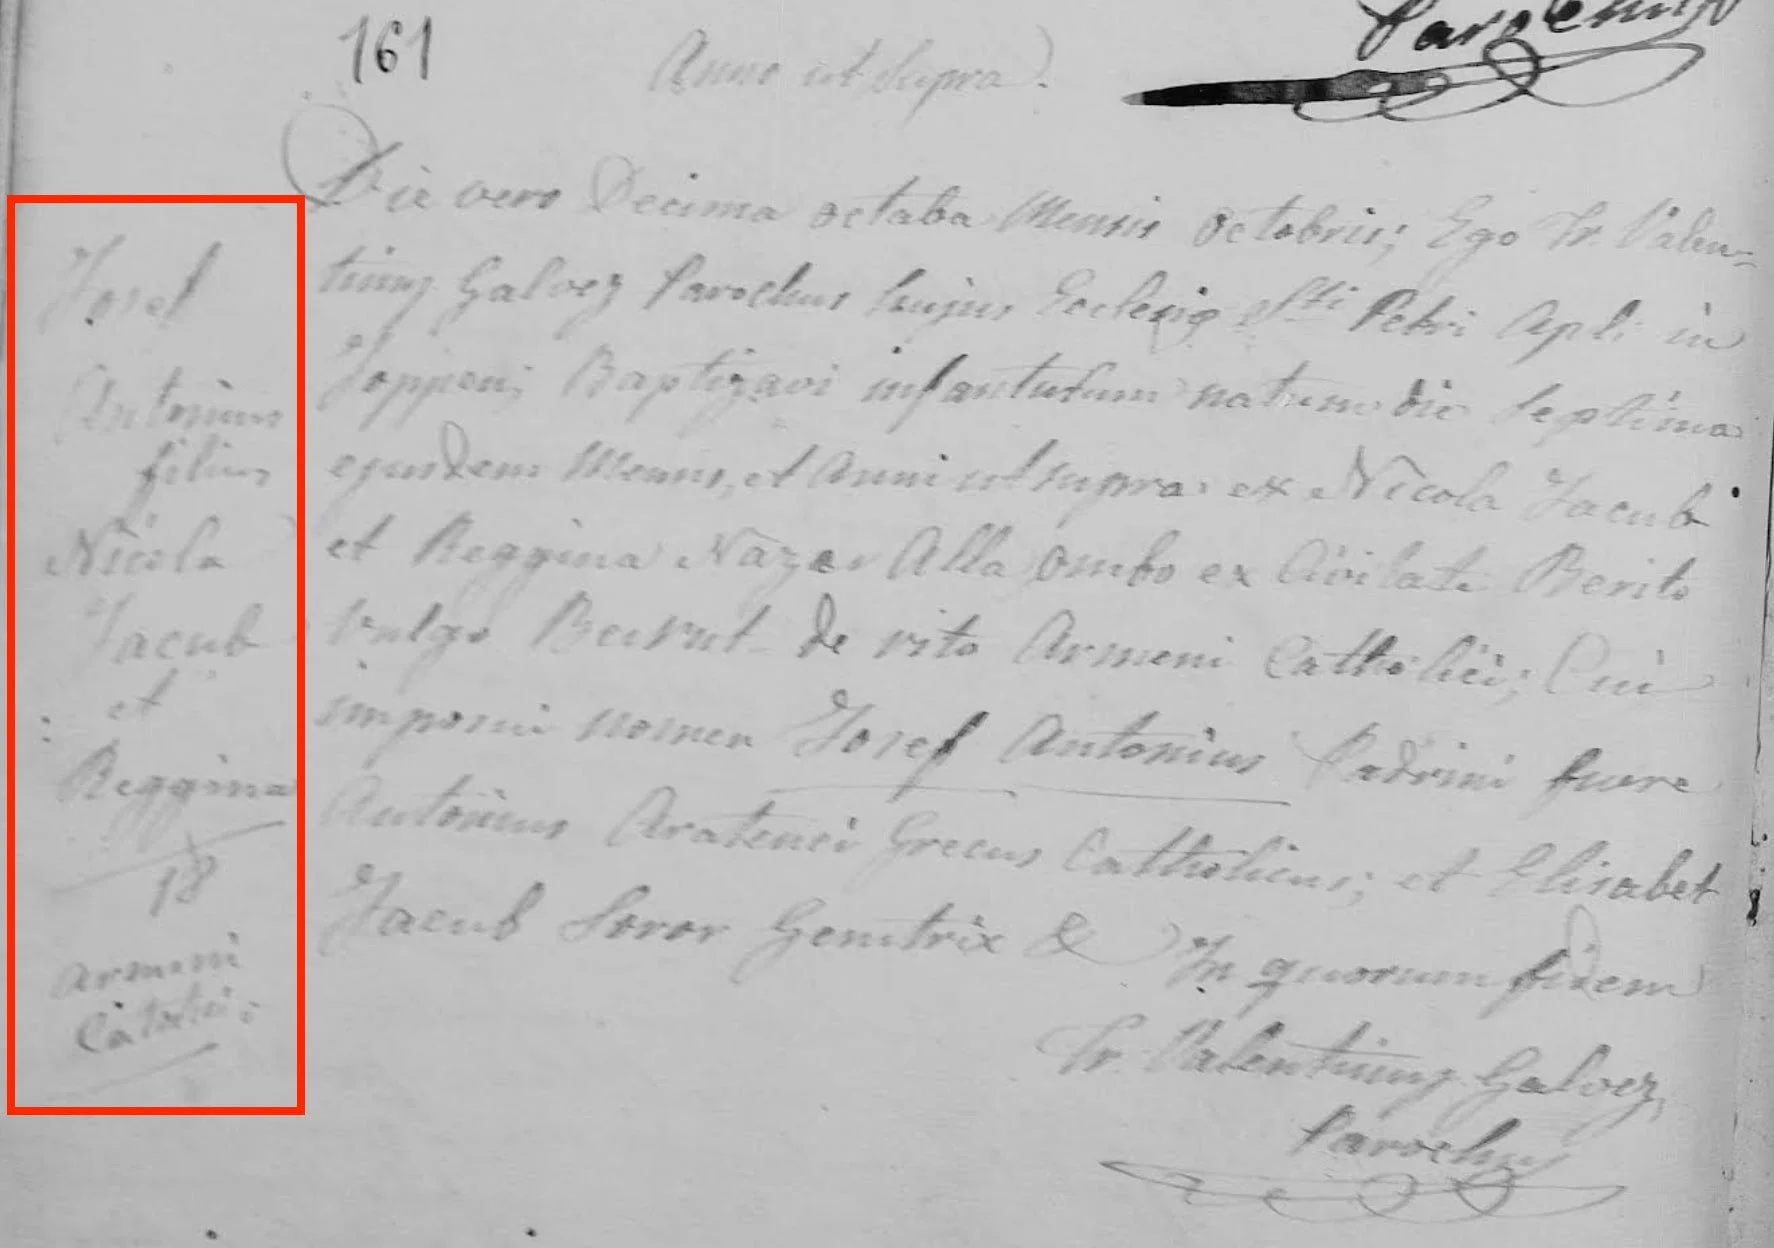 Parochus
161
Anno ut supra.
Die vero Decima octaba Mensis Octobris; Ego Fr. Valen-
tinus Galvez Parochus hujus Ecclesiæ Sti Petri Apli in
Joppen; Baptizavi infantulum natum die Septima
ejusdem Mensis, et Anni ut supra ex Nicola Jacub
et Reggina Nazar Alla ombo ex Civitate Berito
vulgo Beirut de rito Armeni Catholici; Cui
imposui nomen Josef Antonius Padrini fuere
Antonius Aratenci Grecus Catholicus; et Elisabet
Jacub Soror Genitrix & In quorum fidem
Fr. Valentinus Galvez,
Parochus
Josef
Antonius
filius
Nicola
Jacub
et
Reggina
18
Armeni